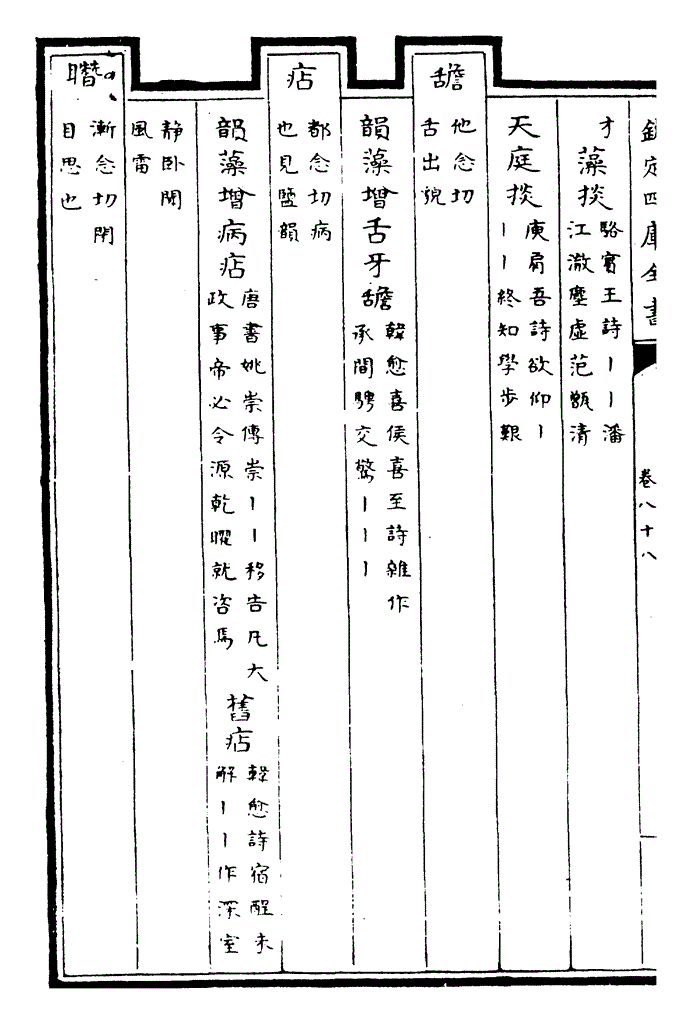 欽定四庫全書 卷八十八
才藻掞 駱賓王詩丨丨潘
江澈塵虛范甑清
天庭掞 庾肩吾詩欲仰丨
丨丨終知學步艱
舚 他念切
舌出貌
韻藻增舌牙舚 韓愈喜侯喜至詩雜作
承間騁交驚丨丨丨
痁 都念切病
也見鹽韻
韻藻增病痁 唐書姚崇傳崇丨丨移告凡大
政事帝必令源乾曜就咨焉
舊痁 韓愈詩宿酲未
解丨丨作深室
靜卧聞
風雷
䁮 漸念切閉
目思也